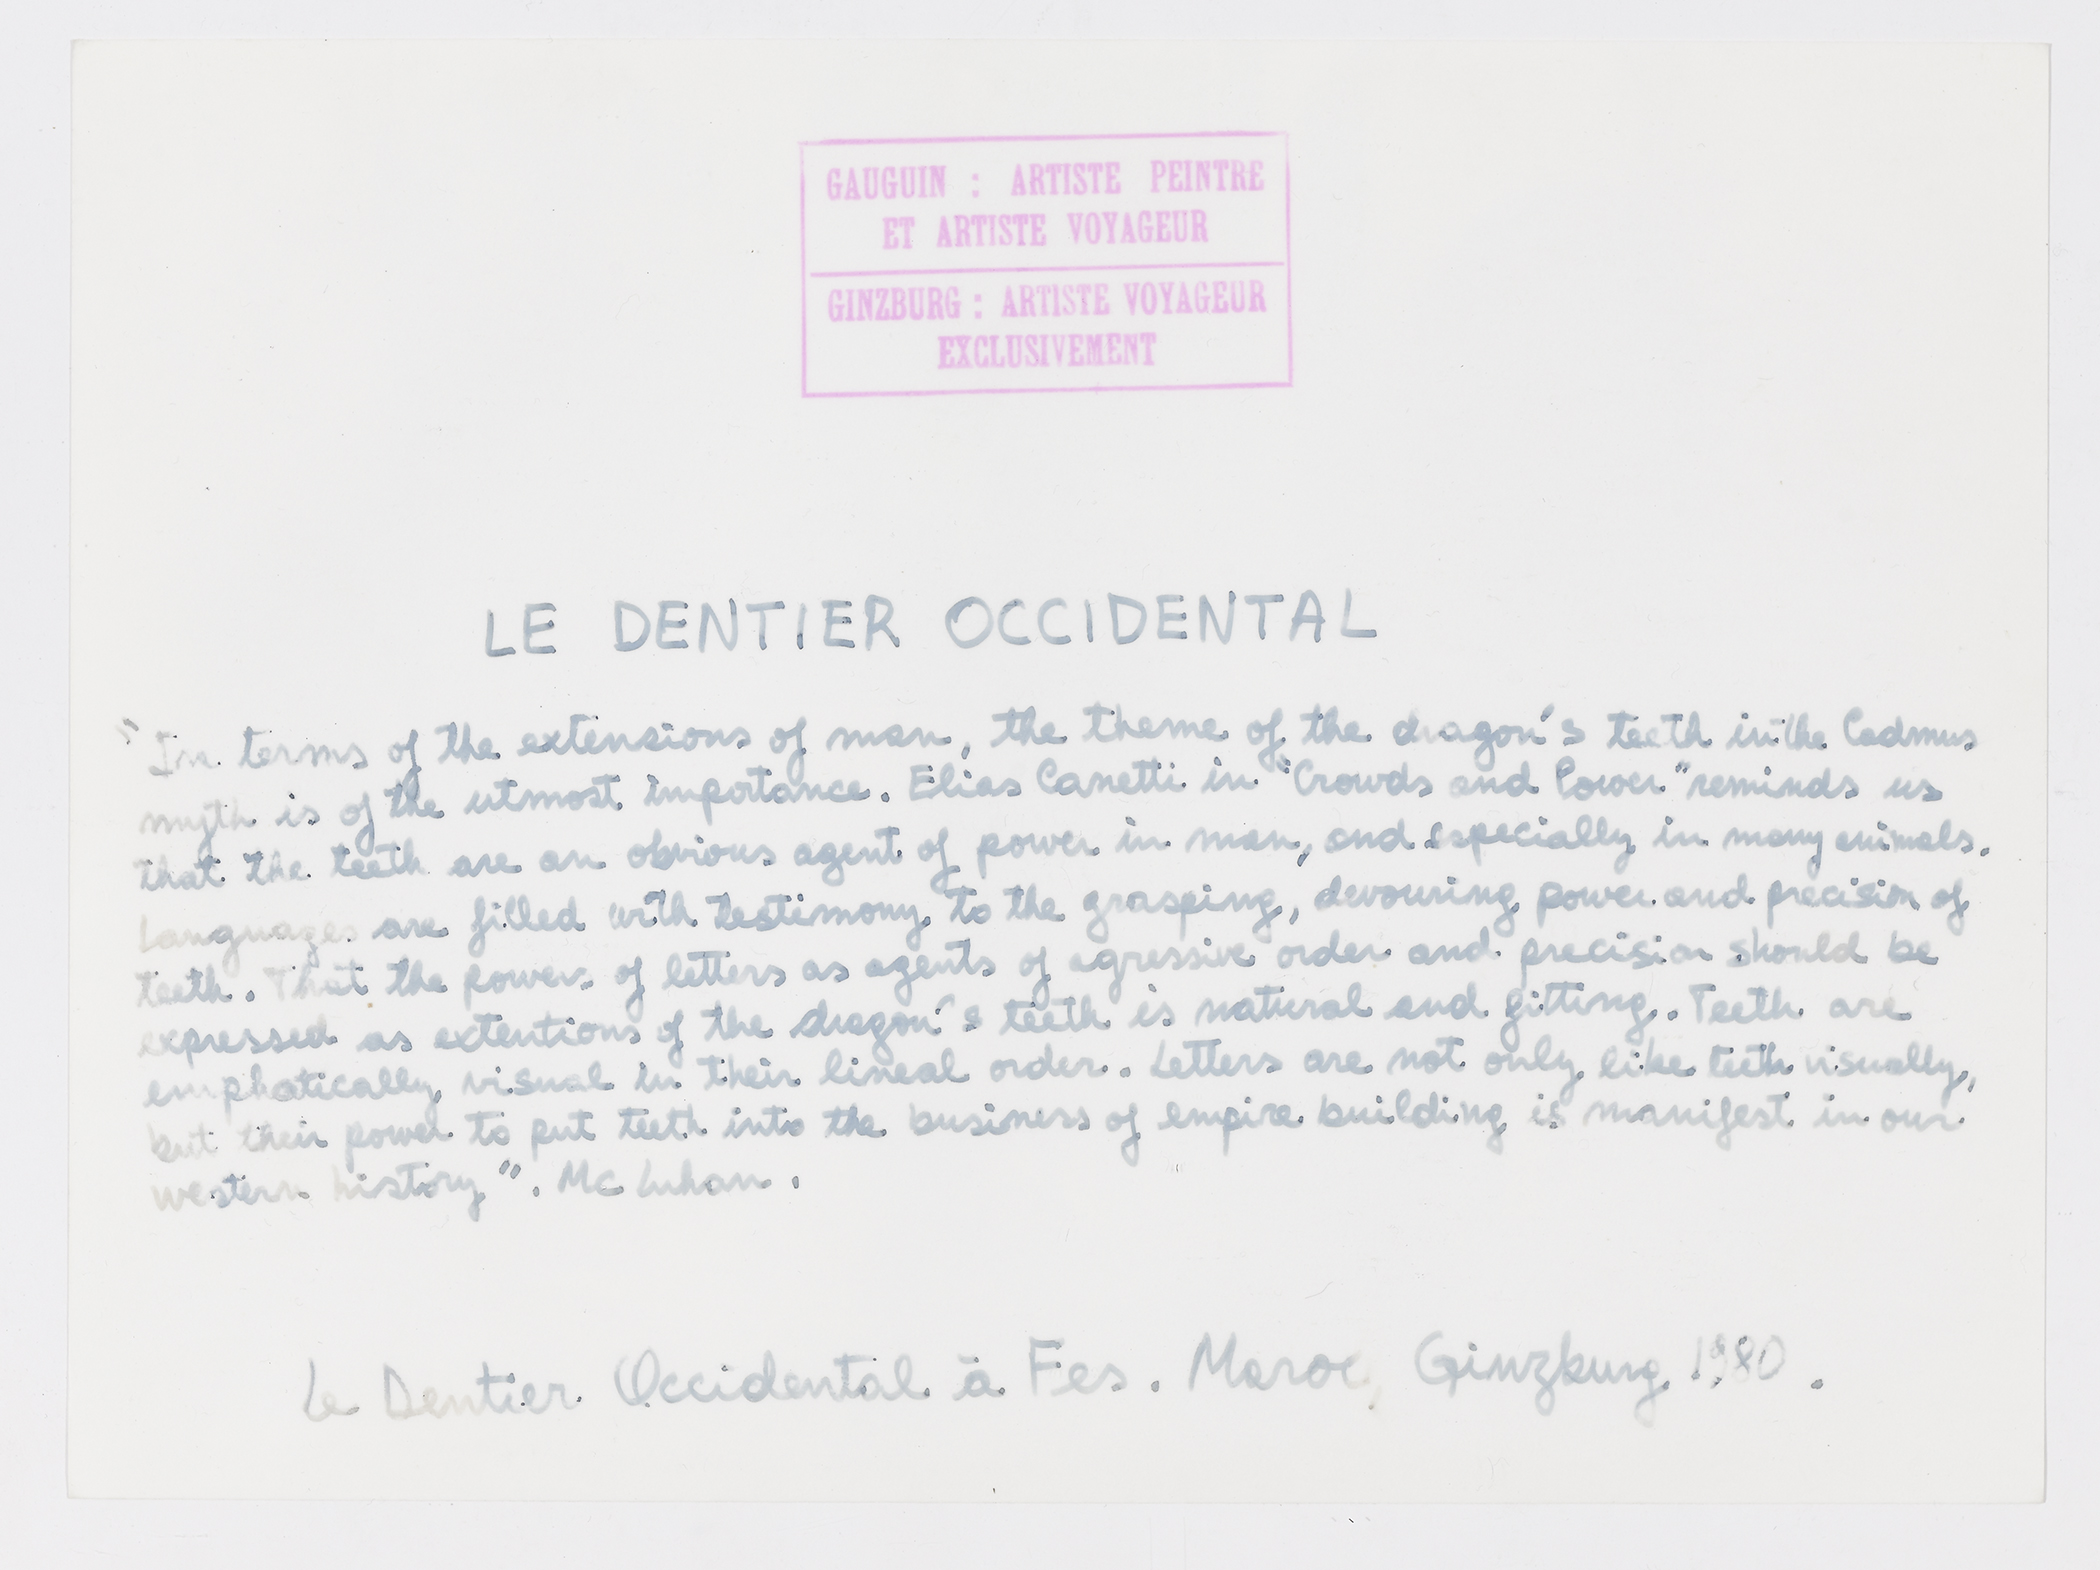 GAUGUIN : ARTISTE PEINTRE
ET ARTISTE VOYAGEUR
GINZBURG : ARTISTE VOYAGEUR
EXCLUSIVEMENT
LE DENTIER OCCIDENTAL
"In terms of the extensions of man, the theme of the dragon's teeth in the Cadmus
myth is of the utmost importance. Elias Canetti in "Crowds and Power" reminds us
that the teeth are an obvious agent of power in man, and especially in many animals.
Languages are filled with testimony to the grasping, devouring power and precision of
teeth. That the powers of letters as agents of agressive order and precision should be
expressed as extentions of the dragon's teeth is natural and fitting. Teeth are
emphatically visual in their lineal order. Letters are not only like teeth visually,
but their power to put teeth into the business of empire building is manifest in our
western history". Mc Luhan.
Le Dentier Occidental à Fes. Maroc, Ginzburg, 1980.